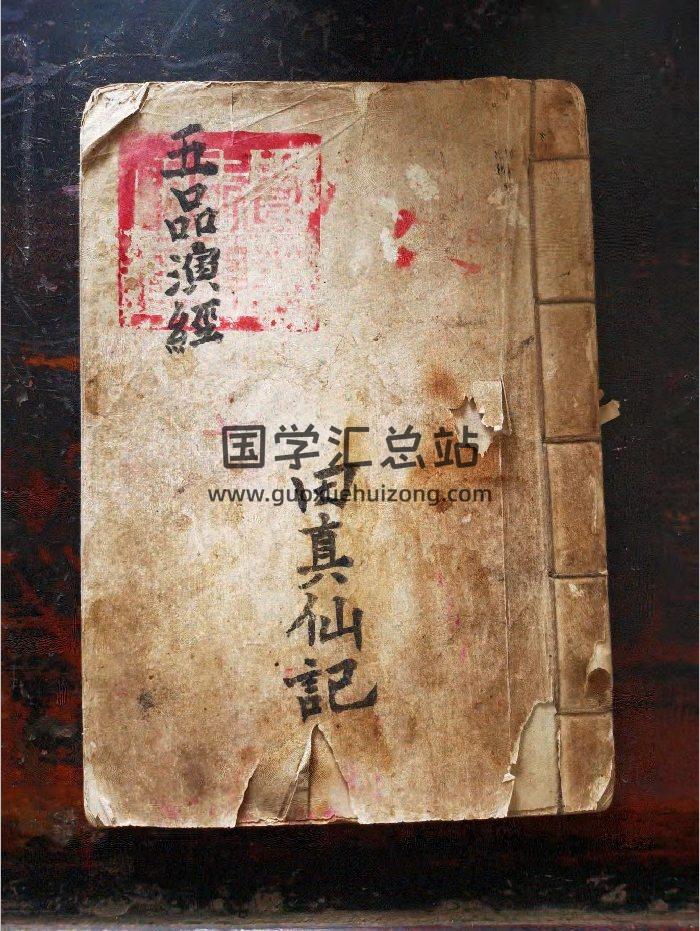 五品演經
田真仙記
国学汇总站
www.guoxuehuizong.com